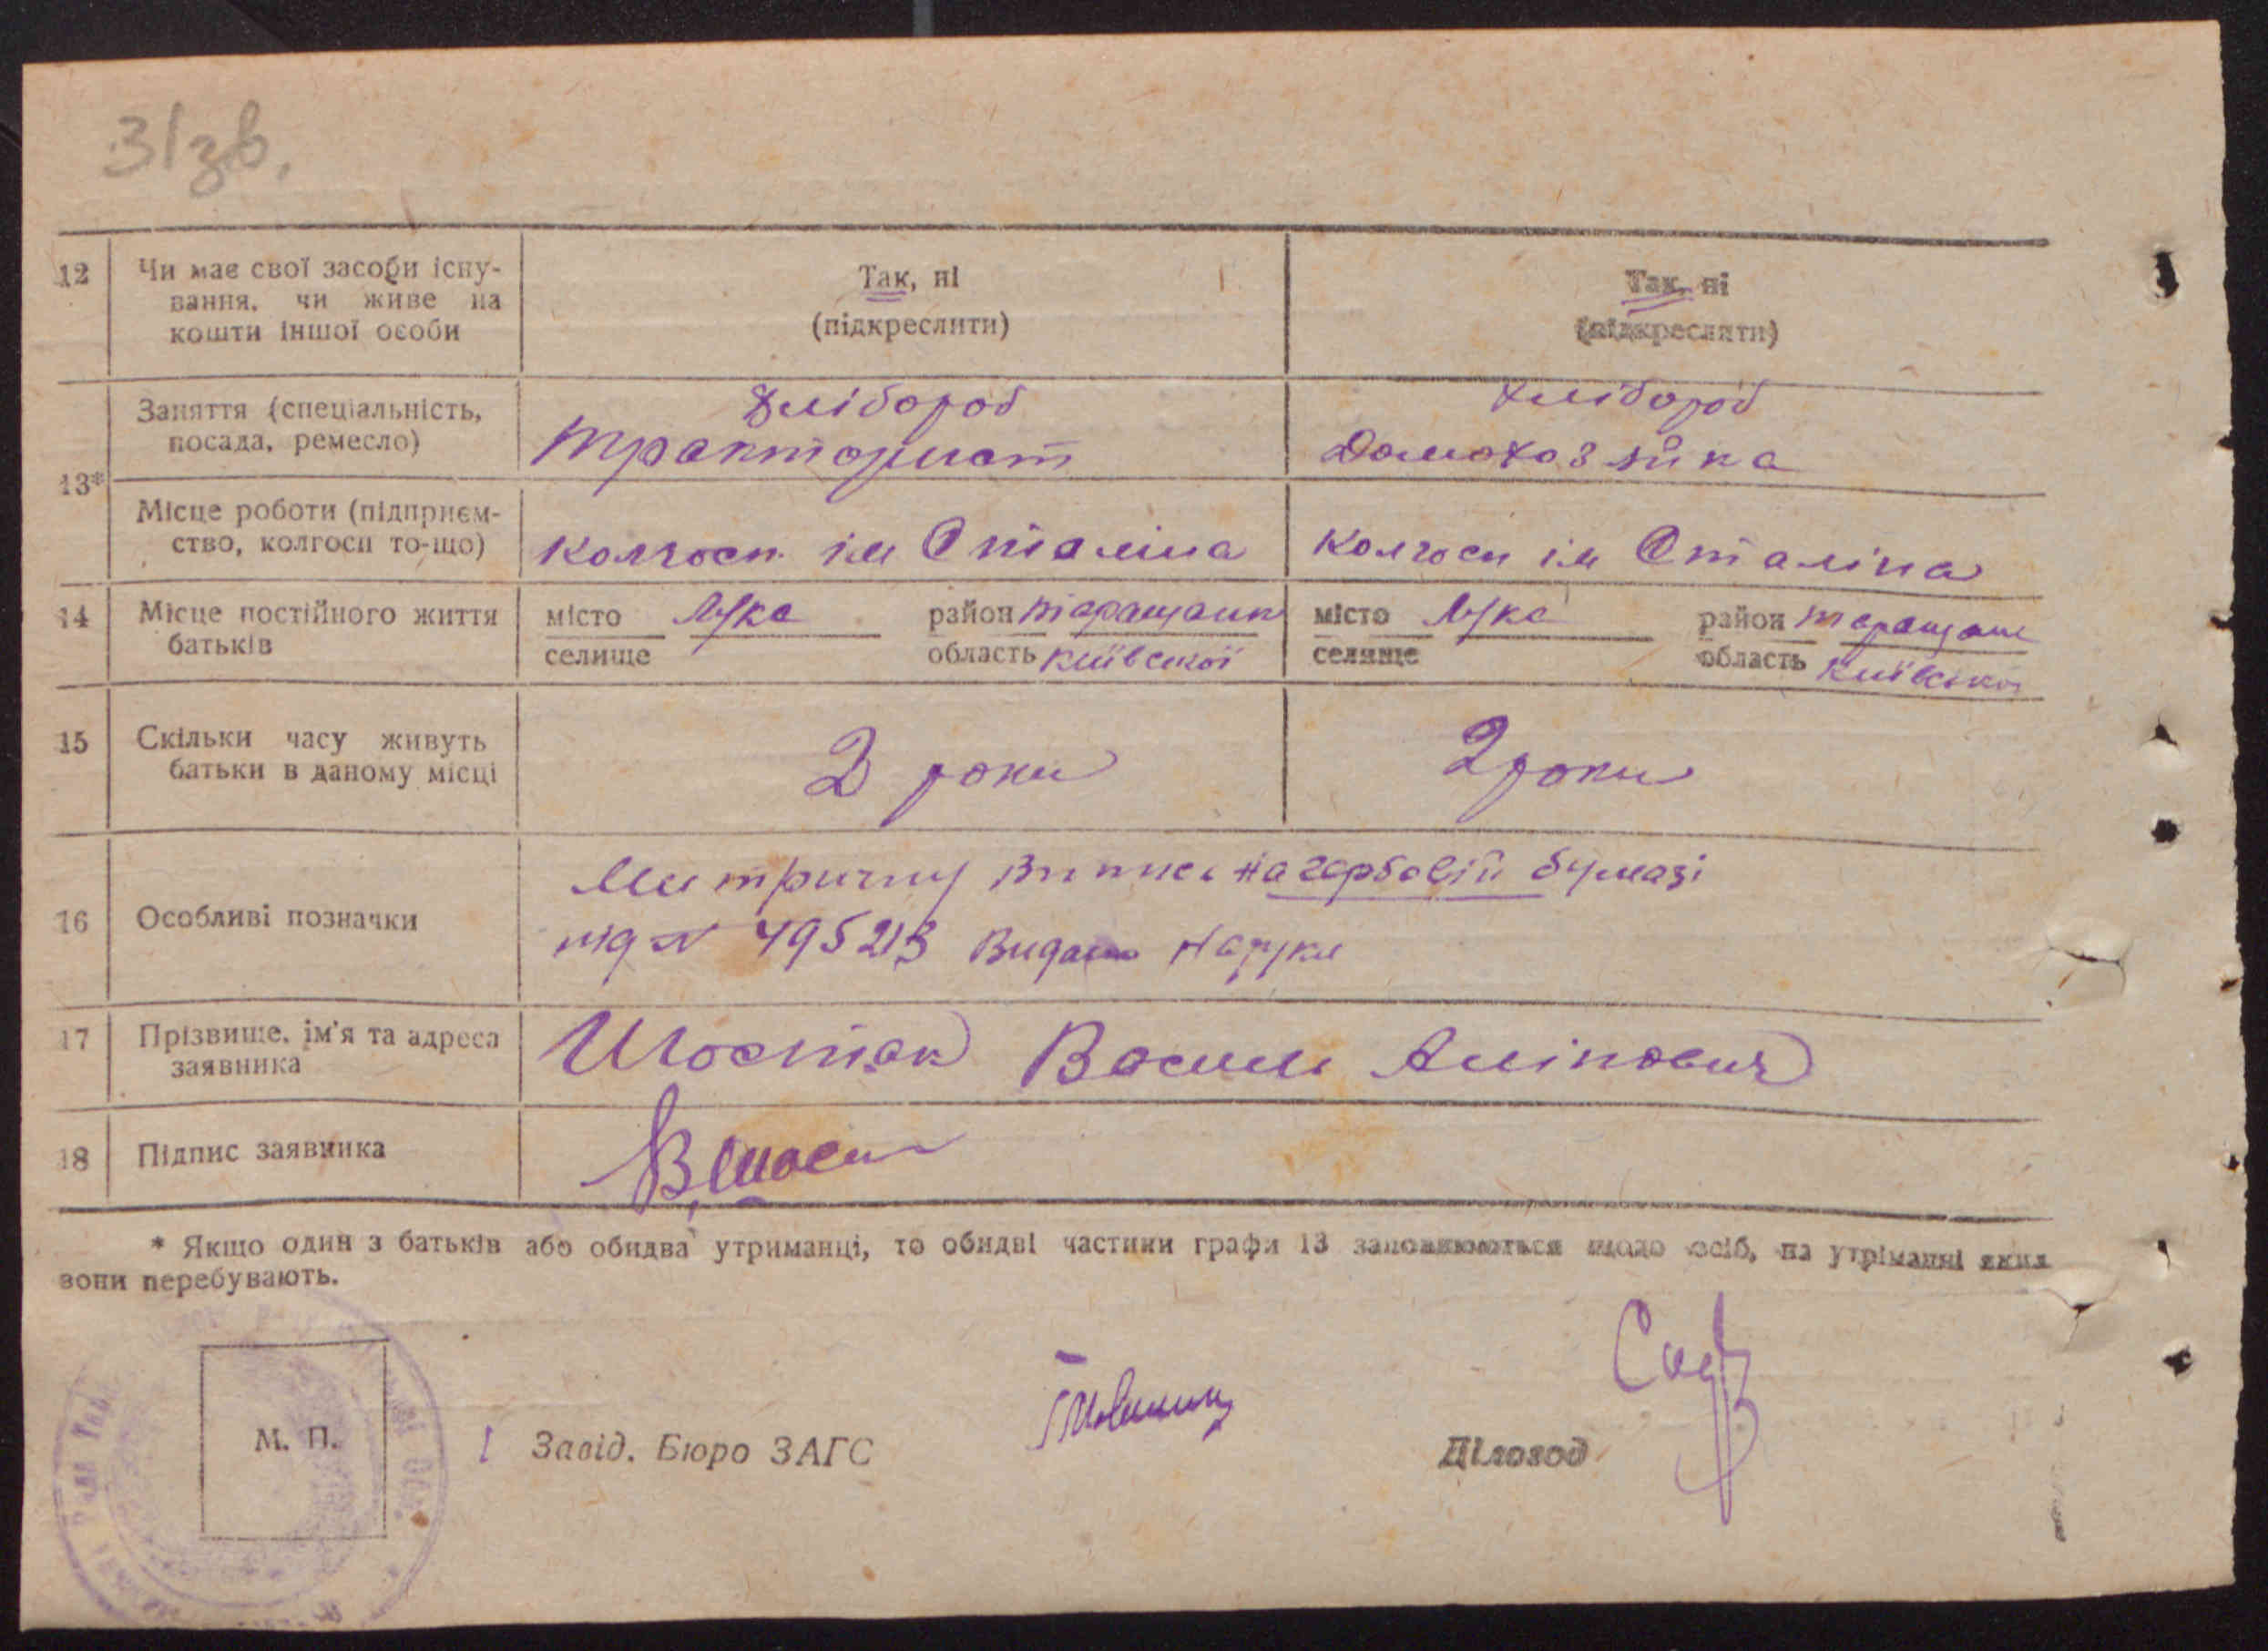 31зв.
12 Чи має свої засоби існу-
вання, чи живе на
кошти іншої особи
Так, ні
(підкреслити)
Так, ні
(підкреслити)
13*
Заняття (спеціальність,
посада, ремесло)
Хлібороб
Тракторист
Хлібороб
Домохозяйка
Місце роботи (підприєм-
ство, колгосп то-що)
Колгосп ім Сталіна
Колгосп ім Сталіна
14 Місце постійного життя
батьків
місто Лука район Таращанк
селище область Київської
місто Лука район Таращанк
селище область Київської
15 Скільки часу живуть
батьки в даному місці
2 роки
2 роки
16 Особливі позначки
Метричну випись на гербовій бумазі
під № 495213 Видано На руки
17 Прізвище, ім'я та адреса
заявника
Шостак Василь
18 Підпис заявника
* Якщо один з батьків або обидва утриманці, то обидві частини графи 13 заповнюються щодо осіб, на утріманні яких
вони перебувають.
М. П.
Завід. Бюро ЗАГС
Діловод